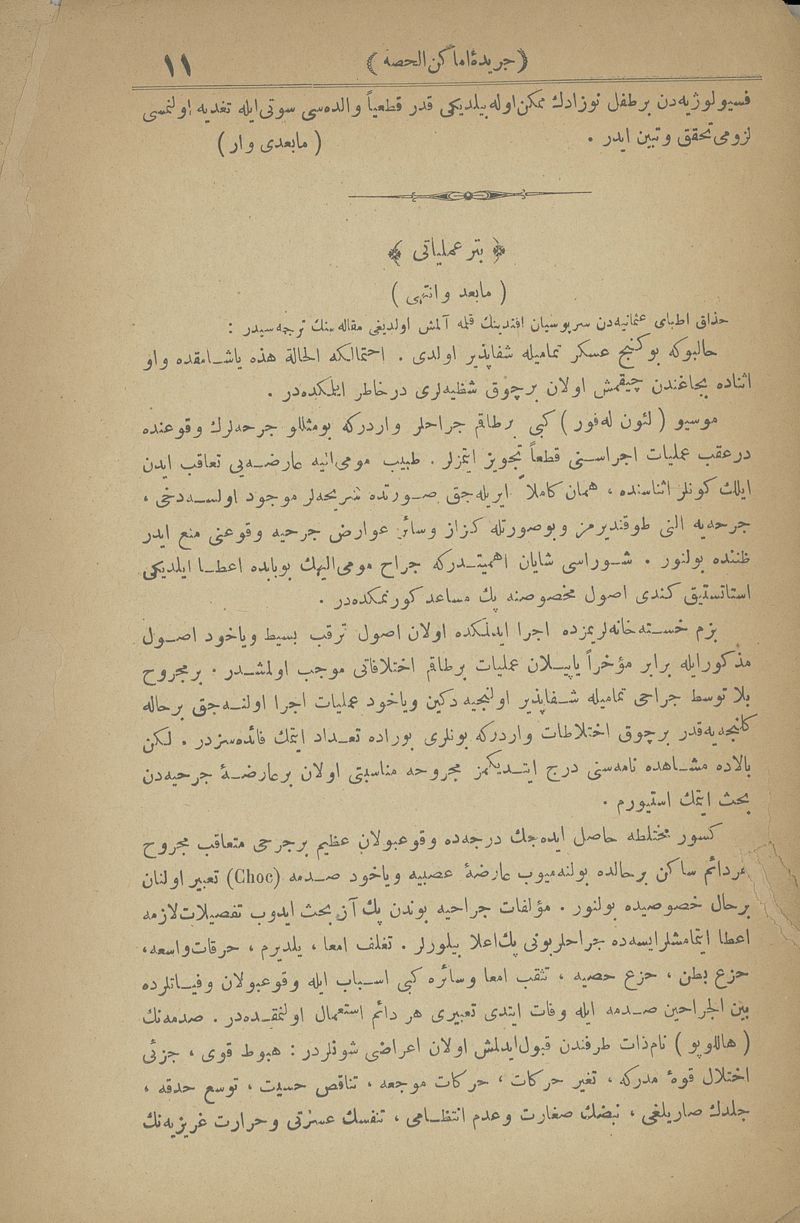 ( جريدهٔ اماكن الصحه )
١١
فسيولوژيه‌دن برطفل نوزادك ممكن اوله‌بيلديكى قدر قطعياً والده‌سى سوتى ايله تغديه اولنمسى
لزومى تحقق وتبين ايدر .
( مابعدى وار )
﴿ بتر عملياتى ﴾
( مابعد وانتهى )
حذاق اطباى عثمانيه‌دن سرپوسيان افندينك قلمه آلمش اولديغى مقاله‌سنك ترجمه‌سيدر :
حالبوكه بوكنج عسكر تماميله شفاپذير اولدى . احتمالكه الحالة هذه ياشامقده واو
اثناده بجاغندن چيقمش اولان برچوق شظيه‌لرى درخاطر ايلكده‌در .
موسيو ( لئون له‌فور ) كبى برطاقم جراحلر واردركه بومثللو جرحه‌لرك وقوعنده
درعقب عمليات اجراسنى قطعاً تجويز ايتمزلر . طبيب مومى‌اليه عارضه‌يى تعاقب ايدن
ايلك كونلر اثناسنده ، همان كاملاً ايريله‌جق صورتده شريحه‌لر موجود اولسه‌دخى ،
جرحه‌يه الى طوقنديرمز وبوصورتله كزاز وسائر عوارض جرحيه وقوعنى منع ايدر
ظننده بولنور . شوراسى شايان اهميتدركه جراح مومى‌اليهك بوبابده اعطا ايلديكى
استاتستيق كندى اصول مخصوصنه پك مساعد كورنمكده‌در .
بزم خسته‌خانه‌لريمزده اجرا ايدلكده اولان اصول ترقب بسيط وياخود اصول
مذكورايله برابر مؤخراً ياپيلان عمليات برطاقم اختلافاتى موجب اولمشدر . برمجروح
بلا توسط جراحى تماميله شفاپذير اولنجيه دكين وياخود عمليات اجرا اولنه‌جق برحاله
كلنجه‌يه‌قدر برچوق اختلاطات واردركه بونلرى بوراده تعداد ايتمك فائده‌سزدر . لكن
بالاده مشاهده نامه‌سنى درج ايتديكمز مجروحه مناسبتى اولان برعارضهٔ جرحيه‌دن
بحث ايتمك استيورم .
كسور مختلطه حاصل ايده‌جك درجه‌ده وقوعبولان عظيم برجرحى متعاقب مجروح
هردائم ساكن برحالده بولنه‌ميوب عارضهٔ عصبيه وياخود صدمه (Choc) تعبير اولنان
برحال خصوصيده بولنور . مؤلفات جراحيه بوندن پك آز بحث ايدوب تفصيلات لازمه
اعطا ايتمامشلرايسه‌ده جراحلربونى پك‌اعلا بيلورلر . تغلف امعا ، يلديرم ، حرقات واسعه،
حزع بطن ، حزع حصيه ، تثقب امعا وسائره كبى اسباب ايله وقوعبولان وفياتلرده
بين الجراحين صدمه ايله وفات ايتدى تعبيرى هر دائم استعمال اولنمقده‌در . صدمه‌نك
( هاللوپو ) نام‌ذات طرفندن قبول‌ايدلمش اولان اعراضى شونلردر : هبوط قوى ، جزئى
اختلال قوهٔ مدركه ، تغير حركات ، حركات موجعه ، تناقص حسيت ، توسع حدقه ،
جلدك صاريلغى ، نبضك صغارت وعدم انتظامى ، تنفسك عسرتى وحرارت غريزيه‌نك